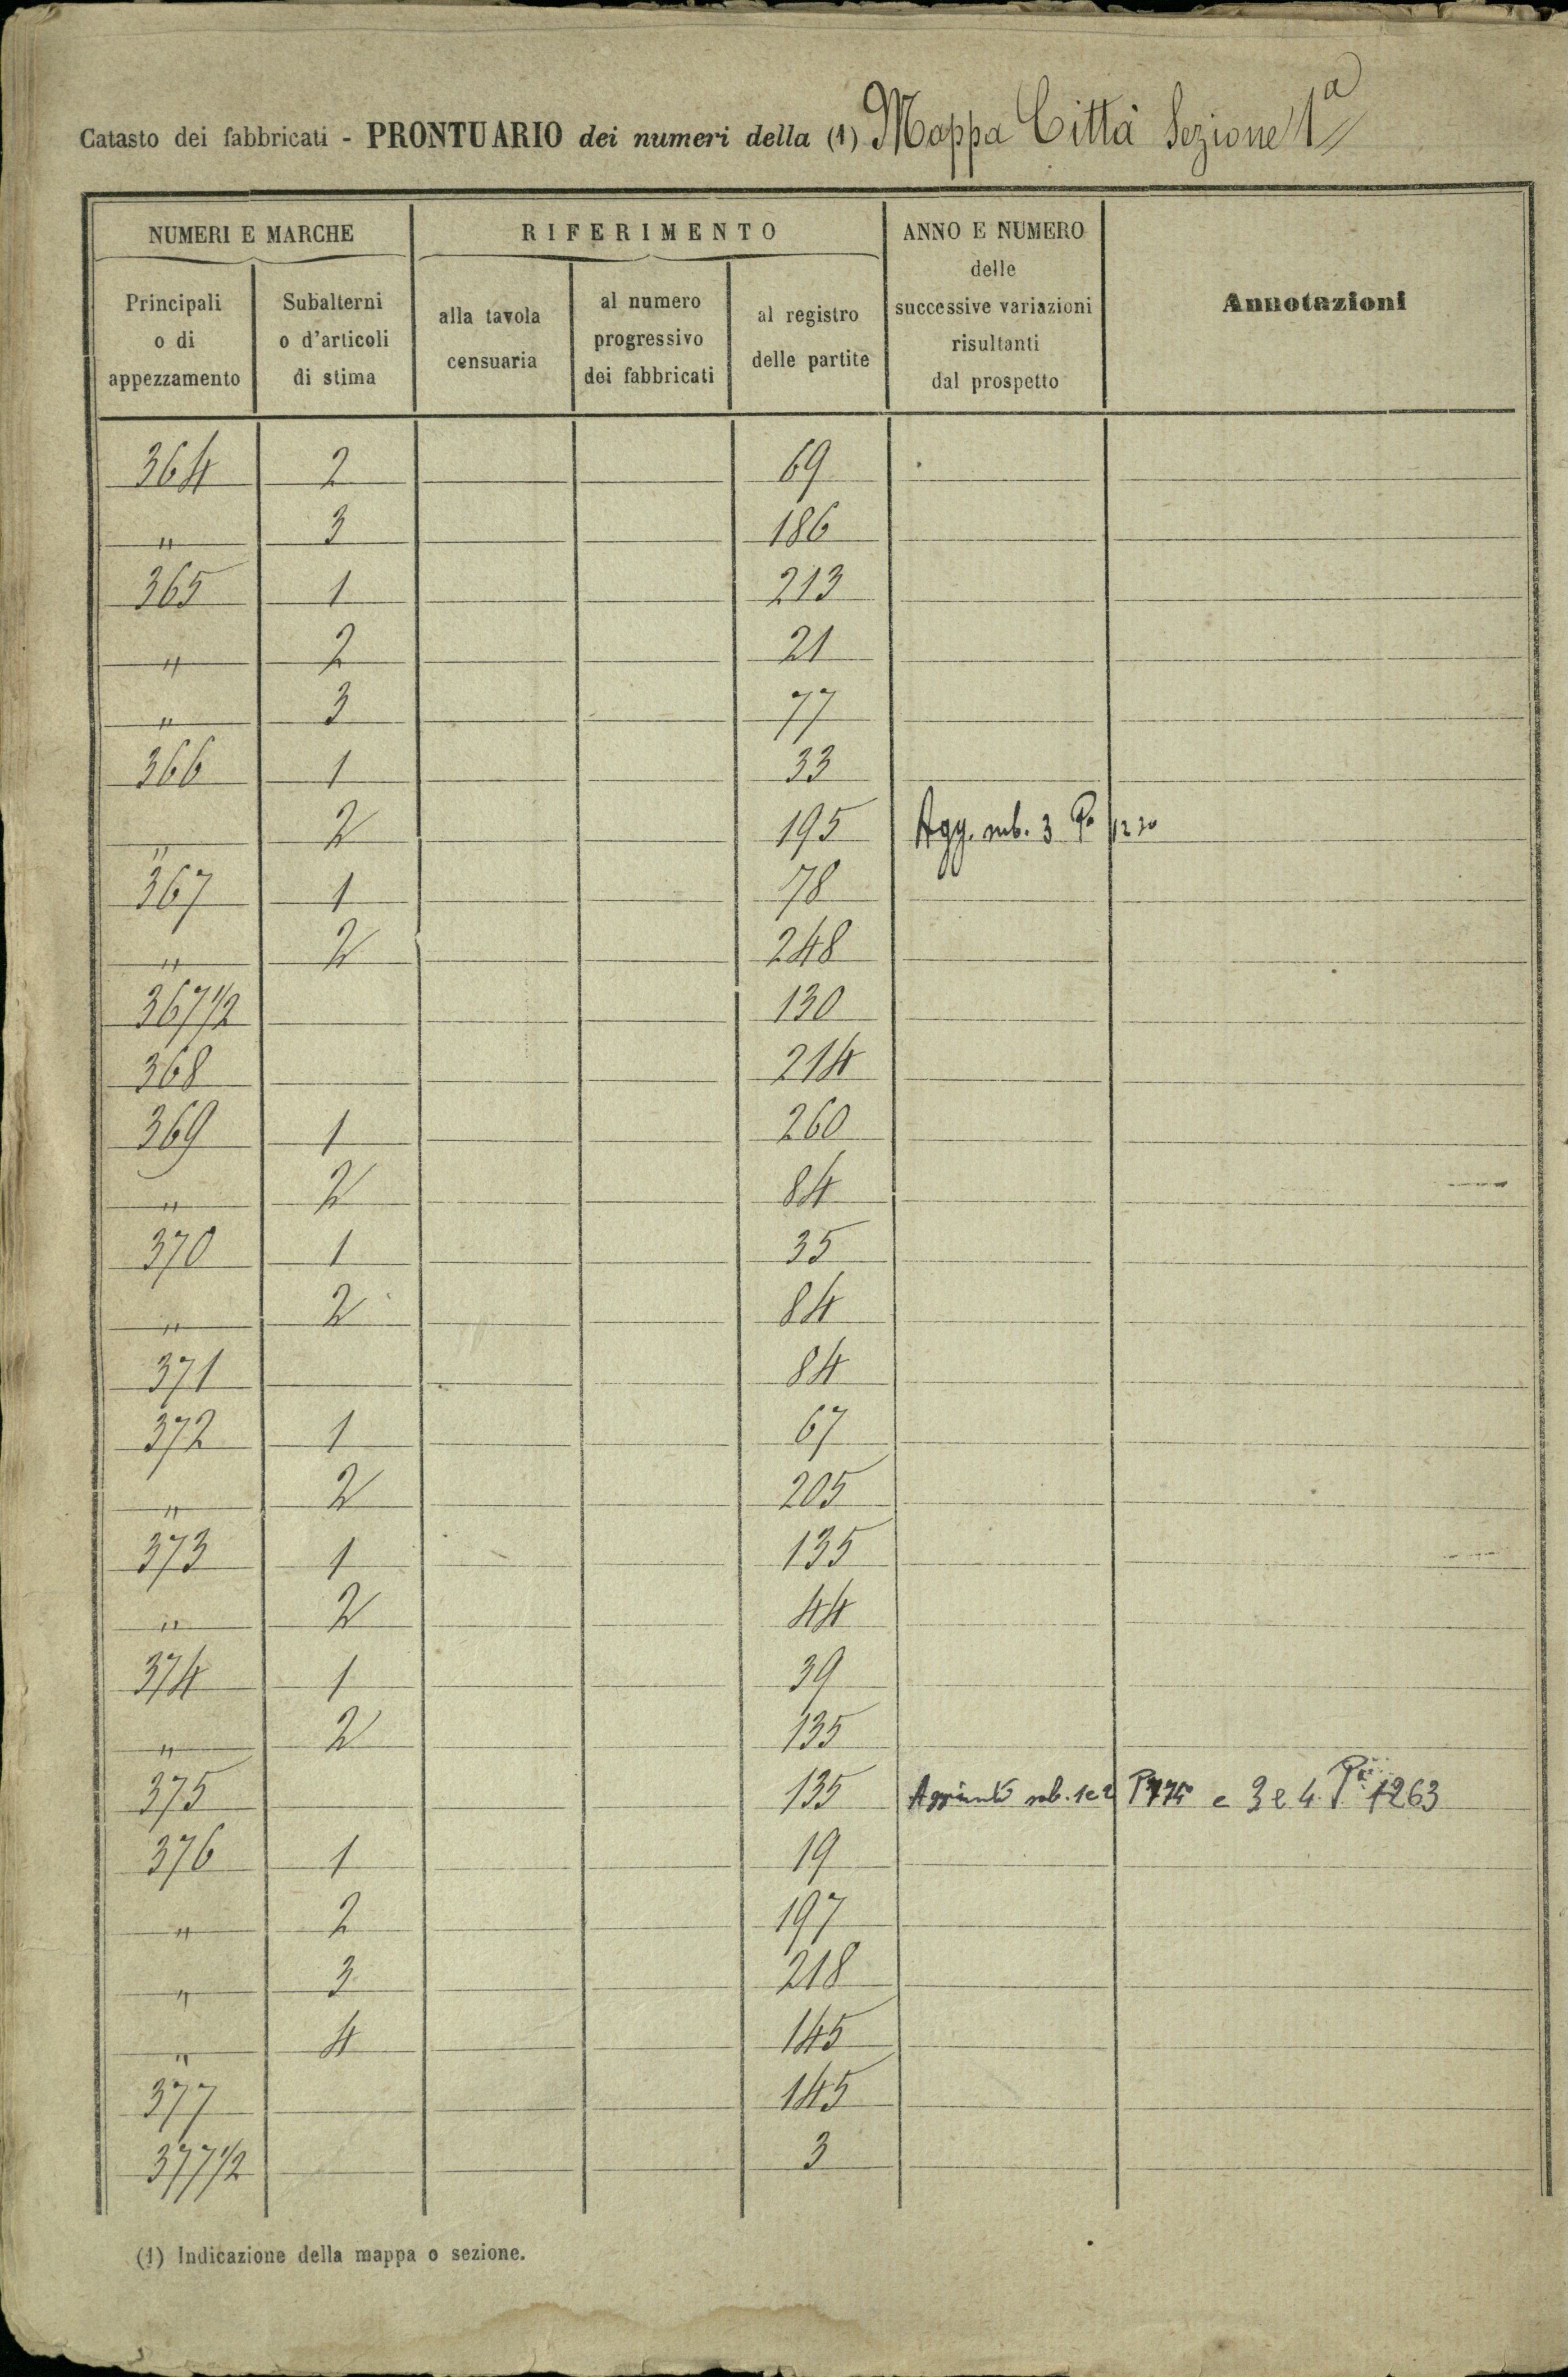 Catasto dei fabbricati - PRONTUARIO dei numeri della (1) Mappa Città Sezione 1ª
NUMERI E MARCHE
RIFERIMENTO
ANNO E NUMERO
delle
successive variazioni
risultanti
dal prospetto
Annotazioni
Principali
o di
appezzamento
Subalterni
o d'articoli
di stima
alla tavola
censuaria
al numero
progressivo
dei fabbricati
al registro
delle partite
364 2 69
" 3 186
365 1 213
" 2 21
" 3 77
366 1 33
" 2 195 Agg. sub. 3 Pª 1230
367 1 78
" 2 248
367 1/2 130
368 214
369 1 260
" 2 84
370 1 35
" 2 84
371 84
372 1 67
" 2 205
373 1 135
" 2 44
374 1 39
" 2 135
375 135 sub. 1 e 2 e 3 e 4 Pª 1263
376 1 19
" 2 197
" 3 218
" 4 145
377 145
377 1/2 3
(1) Indicazione della mappa o sezione.